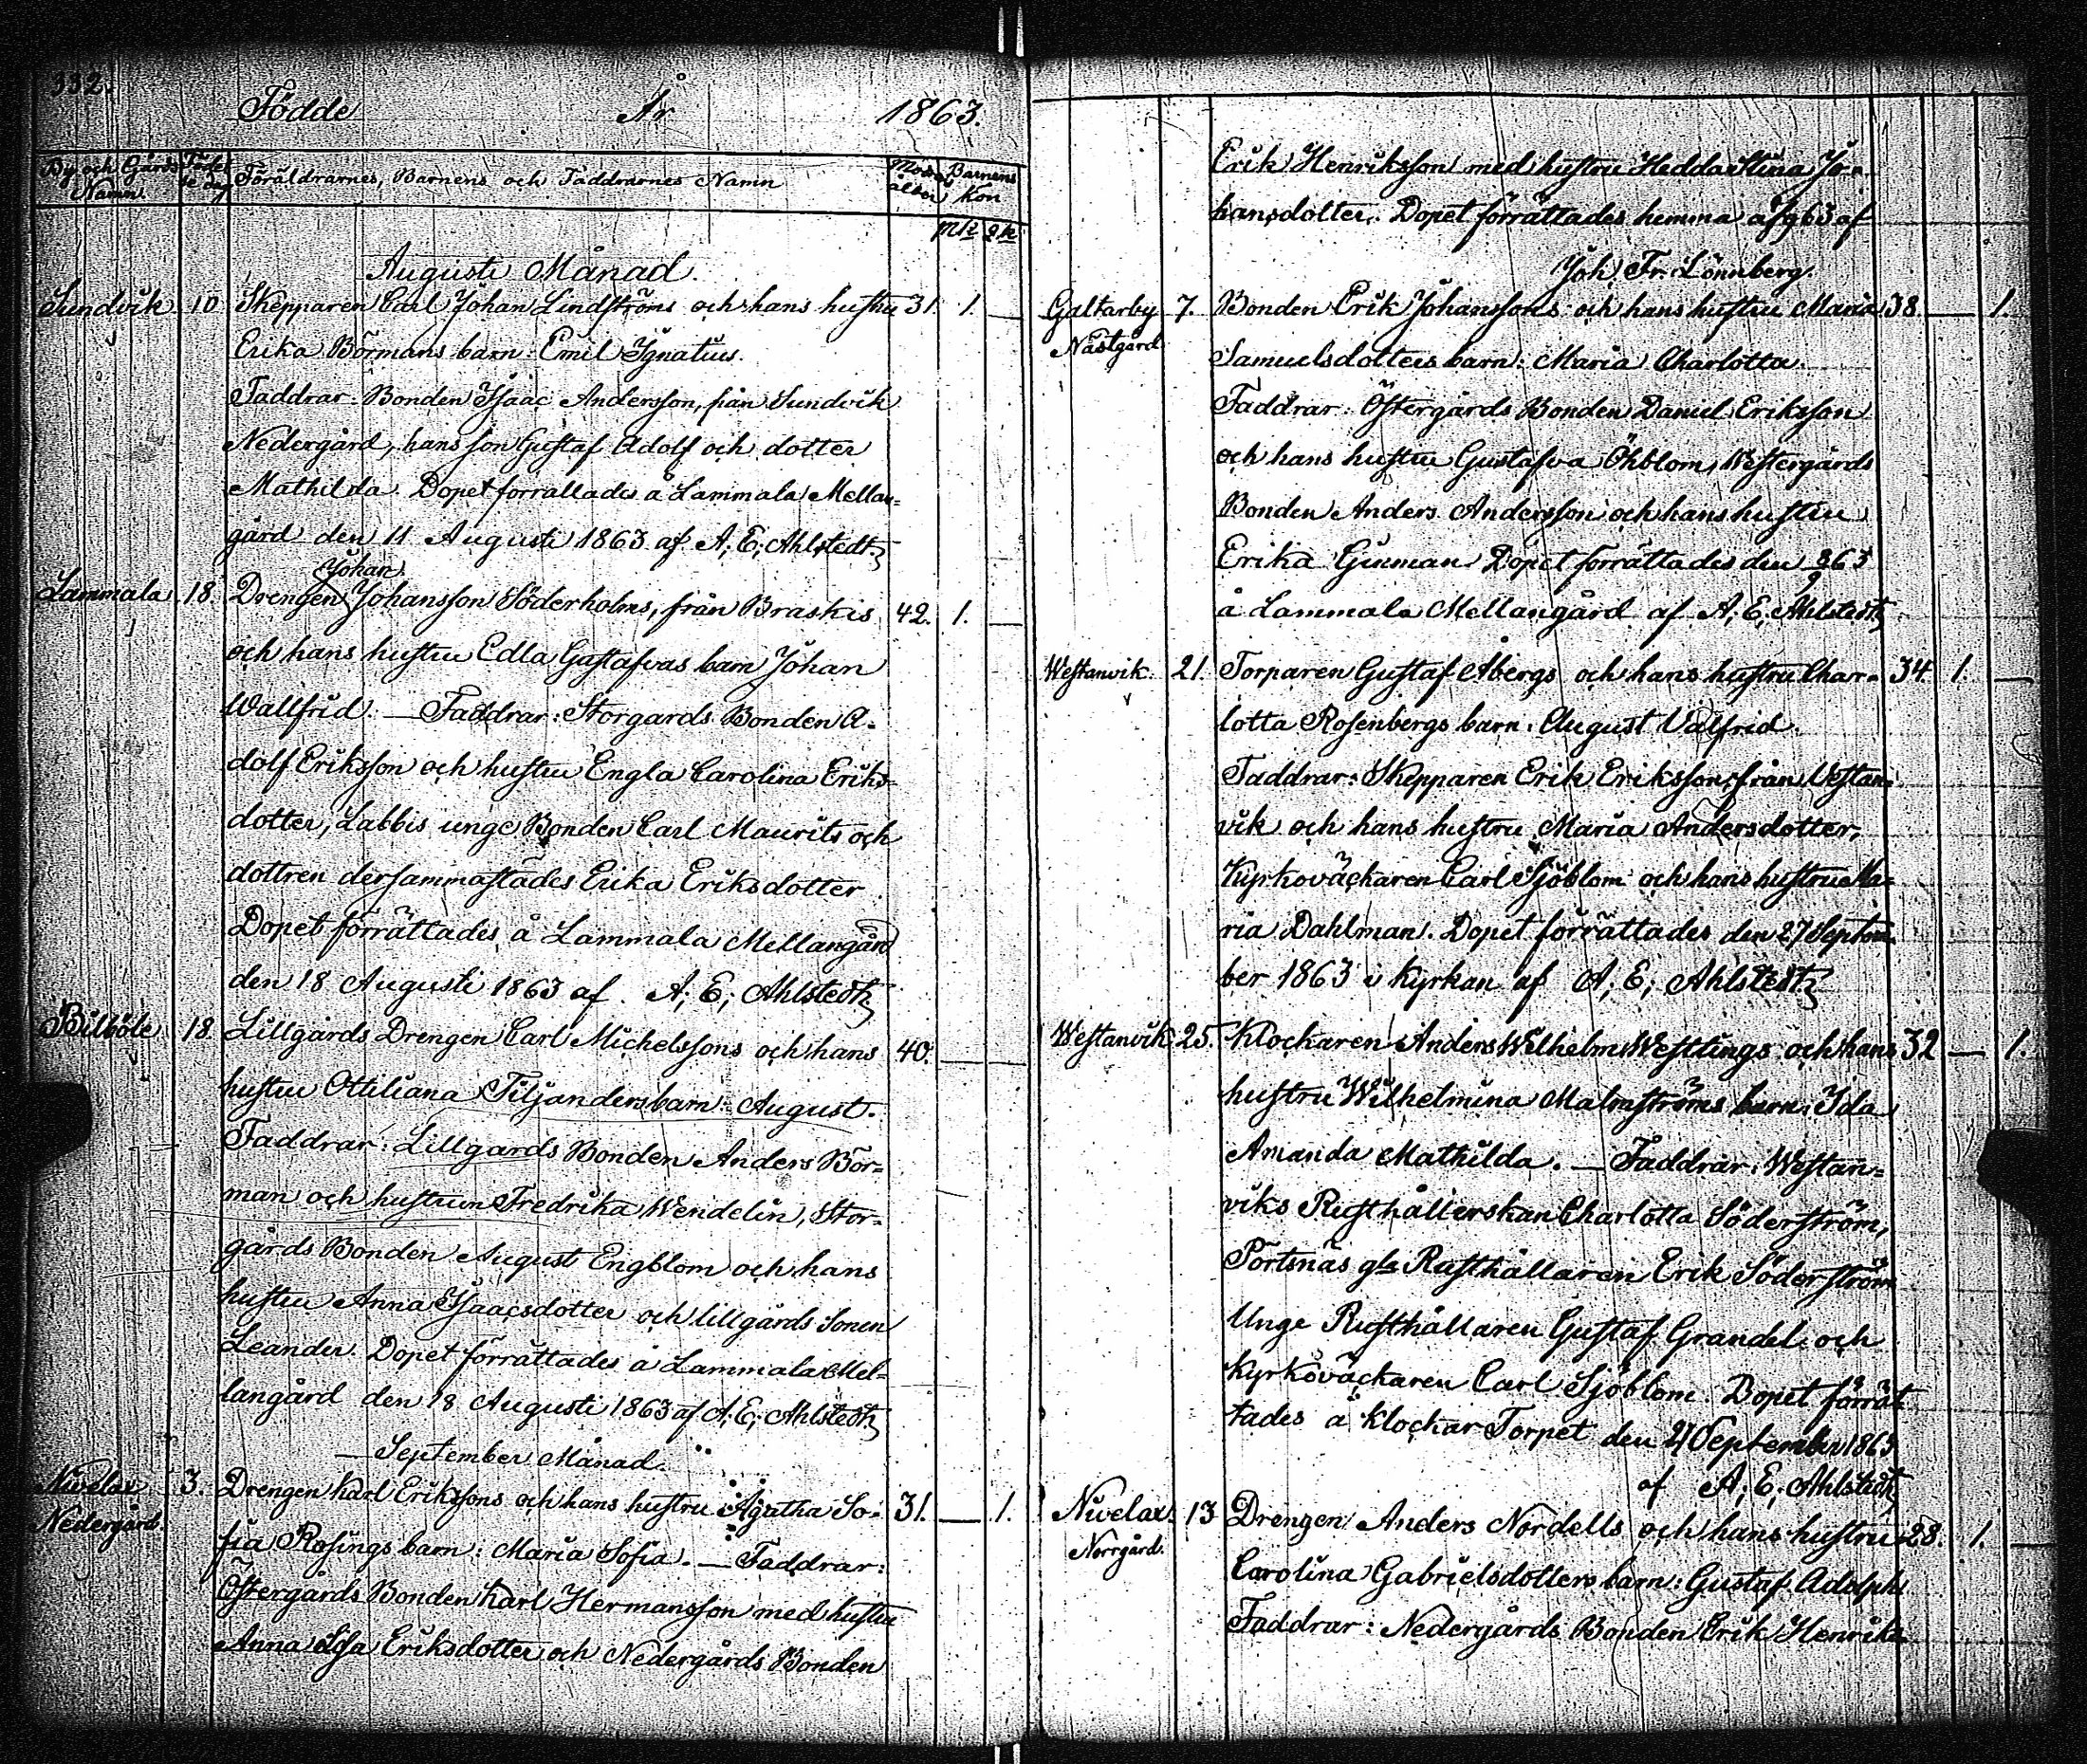 332.
Födde År 1863.
By och Gårds Namn. Födelse dag Föräldrarnes, Barnens och Faddrarnes Namn Moders ålder Barnens Kön
Mk Qk
Augusti Månad.
Sundvik 10 Skepparen Carl Johan Lindströms och hans hustru 31. 1. —
Erika Börmans barn: Emil Ignatius.
Faddrar: Bonden Isaac Andersson, från Sundvik
Nedergård, hans son Gustaf Adolf och dotter
Mathilda. Dopet förrättades å Lammala Mellan-
gård den 11 Augusti 1863 af A; E; Ahlstedt
Johan
Lammala 18. Drengen Johansson Söderholms, från Braskis 42. 1. —
och hans hustru Edla Gustafvas barn Johan
Wallfrid. — Faddrar: Storgards Bonden A-
dolf Eriksson och hustru Engla Carolina Eriks-
dotter, Labbis unge Bonden Carl Maurits och
dottren dersammastädes Erika Eriksdotter
Dopet förrättades å Lammala Mellangård
den 18 Augusti 1863 af A; E; Ahlstedt
Bilböle 18. Lillgårds Drengen Carl Michelssons och hans 40. —
hustru Ottiliana Tiljanders barn: August.
Faddrar: Lillgards Bonden Anders Bör-
man och hustrun Fredrika Wendelin, Stor-
gårds Bonden August Engblom och hans
hustru Anna Isaacsdotter och lillgårds Sonen
Leander. Dopet förrättades å Lammala Mel-
langård den 18 Augusti 1863 af A; E; Ahlstedt
— September Månad.
Nivelax 3. Drengen Karl Erikssons och hans hustru Agatha So- 31. — 1.
Nedergård. fia Rosings barn: Maria Sofia. — Faddrar:
Östergårds Bonden Karl Hermansson med hustru
Anna Lisa Eriksdotter och Nedergårds Bonden
Erik Henriksson med hustru Hedda Stina Jo-
hansdotter. Dopet förrättades hemma af
Joh. Fr. Lönnberg.
Galtarby 7. Bonden Erik Johanssons och hans hustru Maria 38. — 1.
Nästgård Samuelsdotters barn: Maria Charlotta.
Faddrar: Östergårds Bonden Daniel Eriksson
och hans hustru Gustafva Öhblom, Westergårds
Bonden Anders Andersson och hans hustru
Erika Dopet förrättades den 863
9
å Lammala Mellangård af A; E; Ahlstedt
Westanvik. 21. Torparen Gustaf Åbergs och hans hustru Char- 34. 1. —
lotta Rosenbergs barn: August Valfrid.
Faddrar: Skepparen Erik Eriksson, från Vestan-
vik och hans hustru Maria Andersdotter,
Kyrkoväckaren Carl Sjöblom och hans hustru Ma-
ria Dahlman. Dopet förrättades den 27 Septem-
ber 1863 i Kyrkan af A; E; Ahlstedt
Westanvik 25. Klockaren Anders Wilhelm Westlings och hans 32 — 1.
hustru Wilhelmina Malmströms barn: Ida
Amanda Mathilda. — Faddrar: Westan-
viks Rusthållerskan Charlotta Söderström,
Pörtsnäs gla Rusthållaren Erik Söderström
Unge Rusthållaren Gustaf Grandel och
Kyrkoväckaren Carl Sjöblom. Dopet förrät
tades å Klockar Torpet den 27 September 1863
af A; E; Ahlstedt
Nivelax. 13 Drengen Anders Nordells och hans hustru 28. 1. —
Norrgård. Carolina Gabrielsdotters barn: Gustaf Adolph
Faddrar: Nedergårds Bonden Erik Henriks